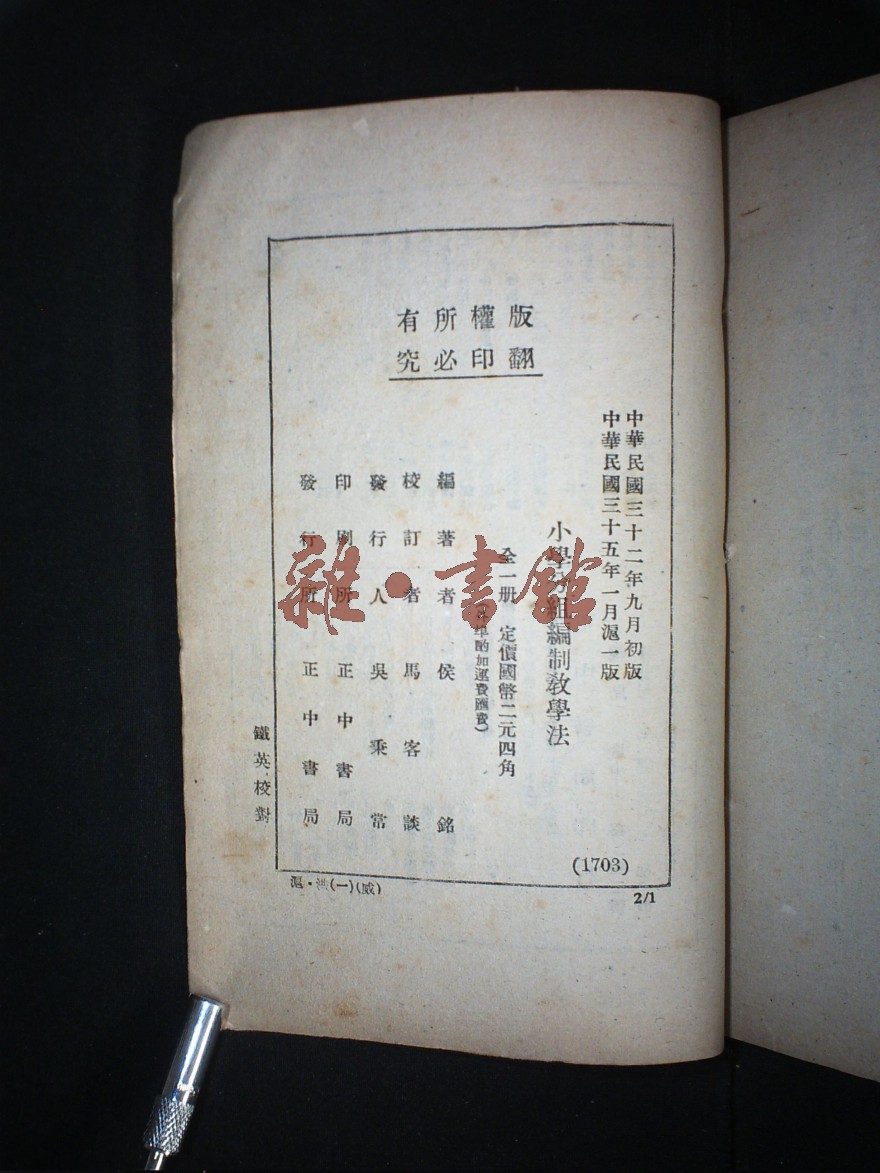 版權所有
翻印必究
中華民國三十二年九月初版
中華民國三十五年一月滬一版
小學分組編制教學法
全一冊 定價國幣二元四角
酌加運費匯費)
編著者 侯銘
校訂者 馬客談
發行人 吳秉常
印刷所 正中書局
發行所 正中書局
鐵英校對
(1703)
滬·(一)(威)
2/1
雜·書館